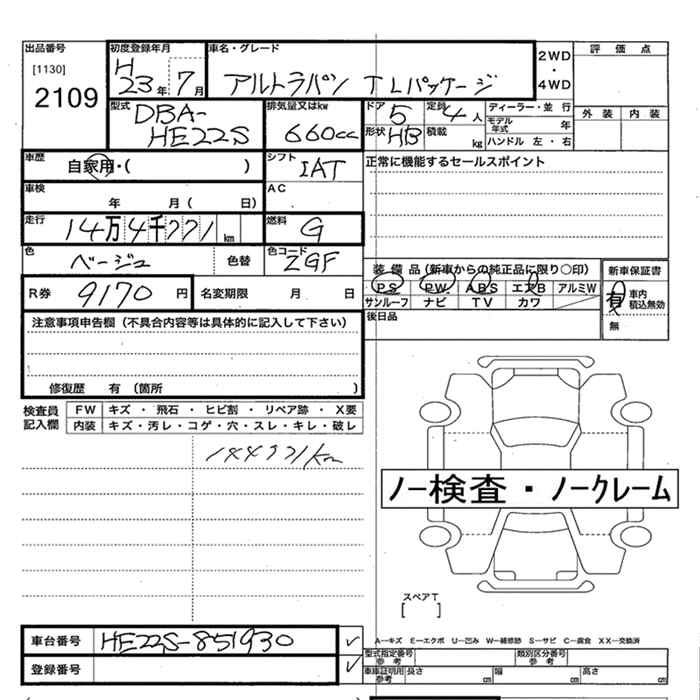 出品番号
[1130]
2109
初度登録年月
H
23年 7月
車名・グレード
アルトラパン TLパッケージ
2WD
・
4WD
評価点
外装 内装
型式
DBA-
HE22S
排気量又はkw
660cc
ドア 5
定員 4人
形状 HB
積載 kg
ディーラー・並 行
モデル年式 年
ハンドル 左・右
車歴
自家用・( )
シフト
IAT
車検
年 月( 日)
AC
正常に機能するセールスポイント
走行
14万4千771km
燃料
G
色
ベージュ
色替
色コード
ZGF
R券 9170円
名変期限 月 日
装備品(新車からの純正品に限り○印)
PS PW ABS エアB アルミW
サンルーフ ナビ TV カワ
後日品
新車保証書
有
無
車内
積込無効
注意事項申告欄(不具合内容等は具体的に記入して下さい)
修復歴 有(箇所 )
検査員
記入欄
FW キズ・飛石・ヒビ割・リペア跡・X要
内装 キズ・汚レ・コゲ・穴・スレ・キレ・破レ
144771km
ノー検査・ノークレーム
スペアT
[ ]
A―キズ E―エクボ U―凹み W―補修跡 S―サビ C―腐食 XX―交換済
車台番号 HE22S-851930 ✓
登録番号 ✓
型式指定番号
参考
類別区分番号
参考
車車証明用
参考
長さ cm
幅 cm
高さ cm